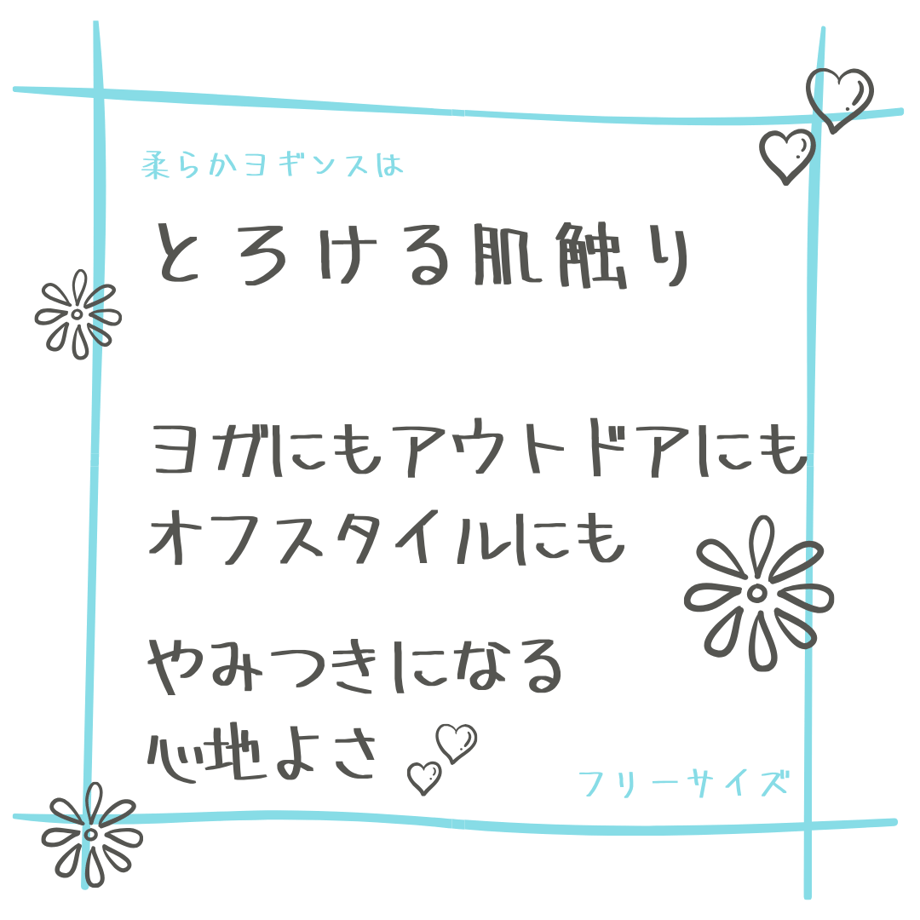 柔らかヨギンスは
とろける肌触り
ヨガにもアウトドアにも
オフスタイルにも
やみつきになる
心地よさ
フリーサイズ